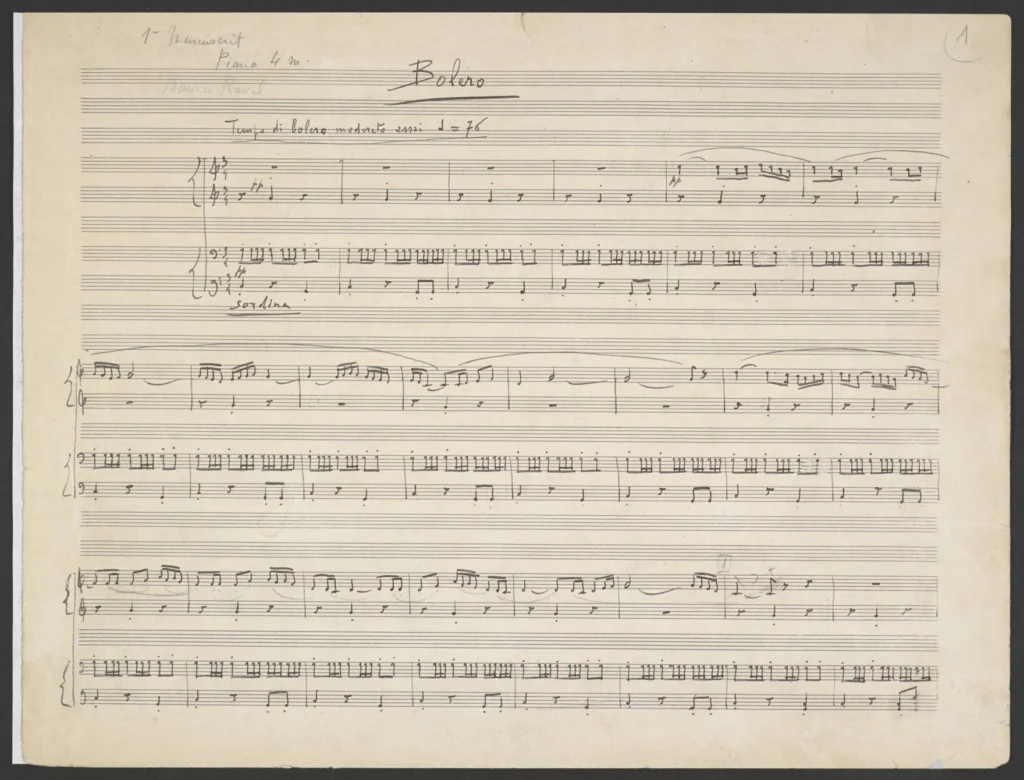 1er Manuscrit
1
Piano 4 m.
Maurice Ravel
Bolero
Tempo di Bolero moderato assai ♩ = 76
pp
pp
pp
Sordina
1